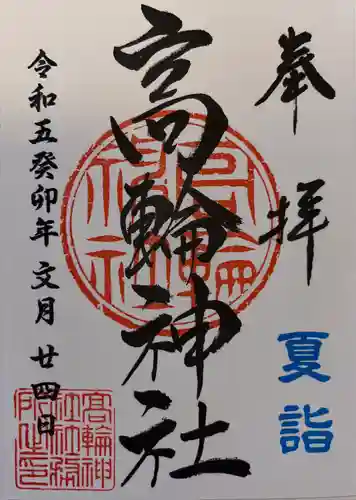 奉拝
夏詣
高輪神社
令和五癸卯年文月廿四日
高輪神社
高輪神
社社務
所之印